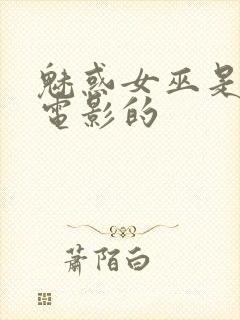 魅惑女巫是
電影的
蕭陌白